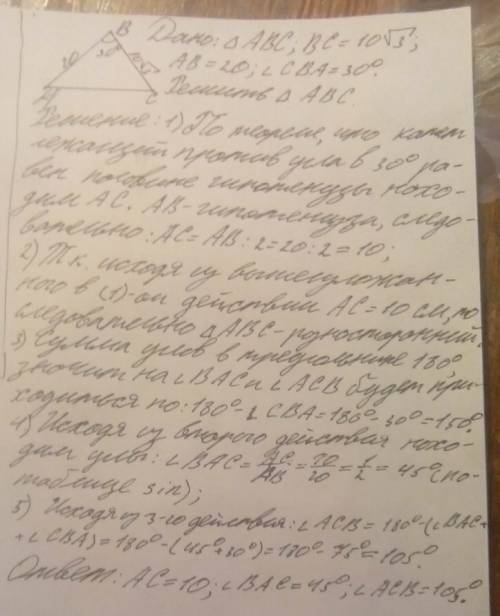 B
20
30°
10√3
A
C
Дано: △ABC; BC=10√3;
AB=20; ∠CBA=30°.
Решить △ABC.
Решение: 1) По теореме, что катет
лежащий против угла в 30° ра-
вен половине гипотенузы нахо-
дим AC. AB-гипотенуза, следо-
вательно: AC=AB:2=20:2=10;
2) Т.к. исходя из вышеизложен-
ного в (1)-ом действии AC=10 см, по
следовательно △ABC-разносторонний.
3) Сумма углов в треугольнике 180°,
значит на ∠BAC и ∠ACB будет при-
ходиться по: 180°-∠CBA=180°-30°=150°.
4) Исходя из второго действия нахо-
дим углы: ∠BAC=AC/AB=10/20=1/2=45° (по
таблице sin);
5) Исходя из 3-го действия: ∠ACB=180°-(∠BAC+
+∠CBA)=180°-(45°+30°)=180°-75°=105°.
Ответ: AC=10; ∠BAC=45°; ∠ACB=105°.